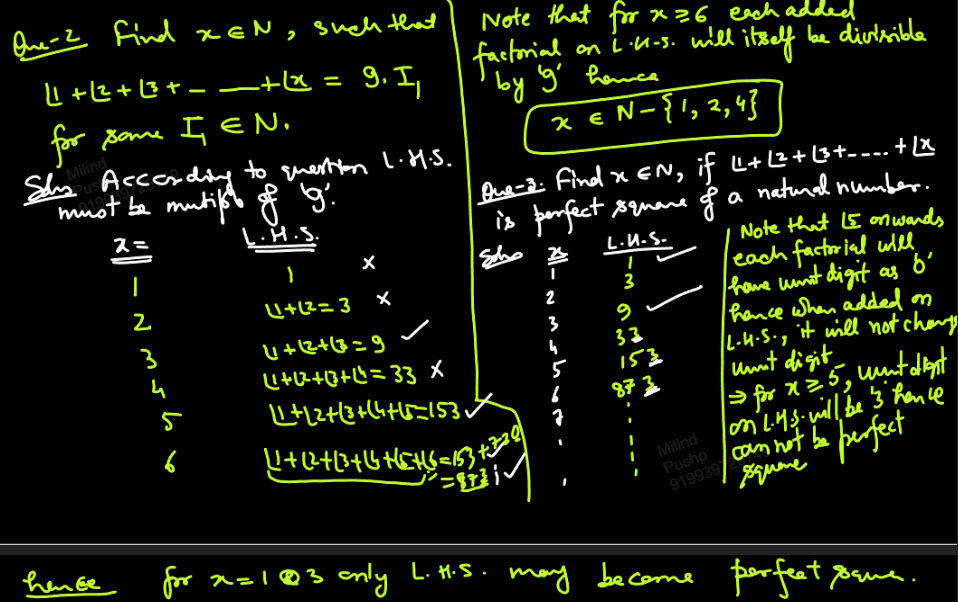 Que-2 Find x ∈ N, such that
⌊1 + ⌊2 + ⌊3 + - —— + ⌊x = 9. I₁
for some I₁ ∈ N.
Soln According to question L.H.S.
must be multiple of '9'.
x = L.H.S.
1 1 ×
2 ⌊1+⌊2 = 3 ×
3 ⌊1+⌊2+⌊3 = 9 ✓
4 ⌊1+⌊2+⌊3+⌊4 = 33 ×
5 ⌊1+⌊2+⌊3+⌊4+⌊5=153 ✓
6 ⌊1+⌊2+⌊3+⌊4+⌊5+⌊6=153+720
=873 ; ✓
Note that for x ≥ 6 each added
factorial on L.H.S. will itself be divisible
by '9' hence
x ∈ N - {1, 2, 4}
Que-3. Find x ∈ N, if ⌊1 + ⌊2 + ⌊3 + ---- + ⌊x
is perfect square of a natural number.
Soln x L.H.S.
1 1 ✓
2 3
3 9 ✓
4 33
5 153
6 873
7
Note that ⌊5 onwards
each factorial will
have unit digit as '0'
hence when added on
L.H.S., it will not change
unit digit
⇒ for x ≥ 5, unit digit
on L.H.S. will be '3' hence
can not be perfect
square
hence for x = 1 & 3 only L.H.S. may become perfect square.
Milind
Pushp
Milind
Pushp